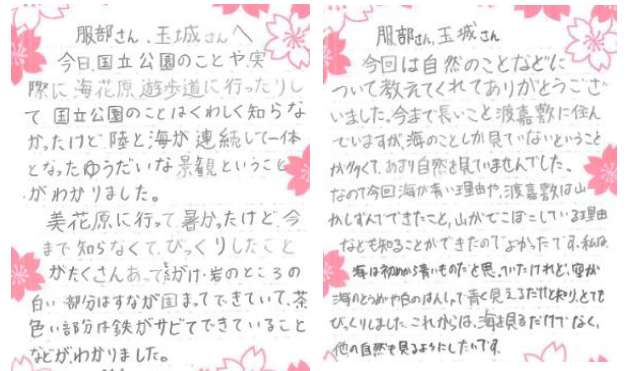 服部さん、玉城さんへ
今日、国立公園のことや実
際に海花原遊歩道に行ったりし
て国立公園のことはくわしく知らな
かったけど陸と海が連続して一体
となったゆうだいな景観ということ
がわかりました。
美花原に行って暑かったけど、今
まで知らなくて、びっくりしたこと
がたくさんあってがけ・岩のところの
白い部分はすなが固まってできていて、茶
色い部分は鉄がサビてできていること
などがわかりました。
服部さん、玉城さん
今回は自然のことなどに
ついて教えてくれてありがとうござ
いました。今まで長いこと渡嘉敷に住ん
でいますが、海のことしか見ていないということ
が多くて、あまり自然を見ていませんでした。
なので今回海が青い理由や、渡嘉敷は山
がしずんでできたこと、山がでこぼこしている理由
なども知ることができたのでよかったです。私は、
海は初めから青いものだと思っていたけれど、空が
海のとうめいや白のはんしゃで青く見えるだけと知り、とても
びっくりしました。これからは、海を見るだけでなく、
他の自然も見るようにしたいです。